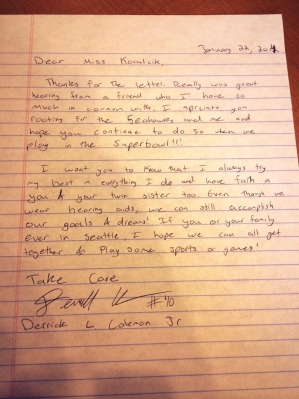 January 22, 2014
Dear Miss Kovalcik,
Thanks for the letter. Really was great
hearing from a friend who I have so
much in common with. I apriciate you
rooting for the Seahawks and me and
hope you continue to do so when we
play in the Superbowl!!!
I want you to know that I always try
my best n everything I do and have faith n
you & your twin sister too. Even though we
wear hearing aids, we can still accomplish
our goals & dreams! If you or your family
ever in Seattle, I hope we can all get
together & Play some sports or games!
Take Care
#40
Derrick L Coleman Jr